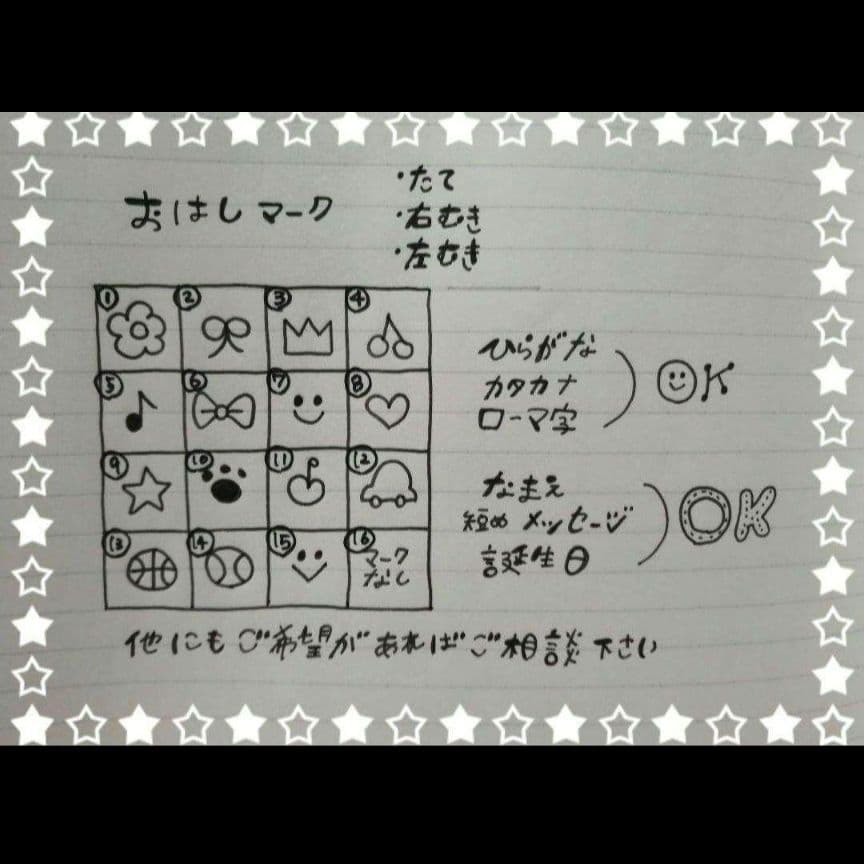 おはし マーク
・たて
・右むき
・左むき
① ② ③ ④
⑤ ⑥ ⑦ ⑧
⑨ ⑩ ⑪ ⑫
⑬ ⑭ ⑮ ⑯
マーク
なし
ひらがな
カタカナ
ローマ字
OK
なまえ
短め メッセージ
誕生日
OK
他にもご希望があればご相談下さい